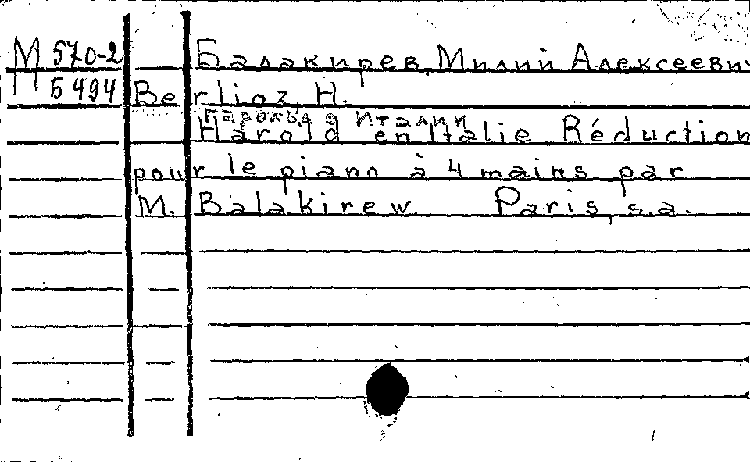 М 570-2 Балакирев, Милий Алексеевич
5494 Berlioz, H.
Гарольд в Италии
Harold en Italie Réduction
pour le piano à 4 mains par
M. Balakirew Paris, s.a.